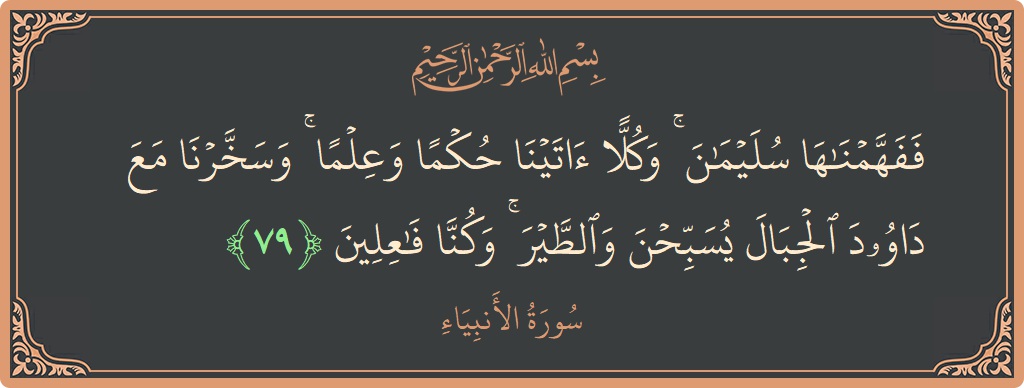 بِسْمِ اللَّهِ الرَّحْمَٰنِ الرَّحِيمِ
فَفَهَّمْنَٰهَا سُلَيْمَٰنَ ۚ وَكُلًّا ءَاتَيْنَا حُكْمًا وَعِلْمًا ۚ وَسَخَّرْنَا مَعَ
دَاوُۥدَ ٱلْجِبَالَ يُسَبِّحْنَ وَٱلطَّيْرَ ۚ وَكُنَّا فَٰعِلِينَ ﴿٧٩﴾
سُورَةُ الأَنبِيَاءِ